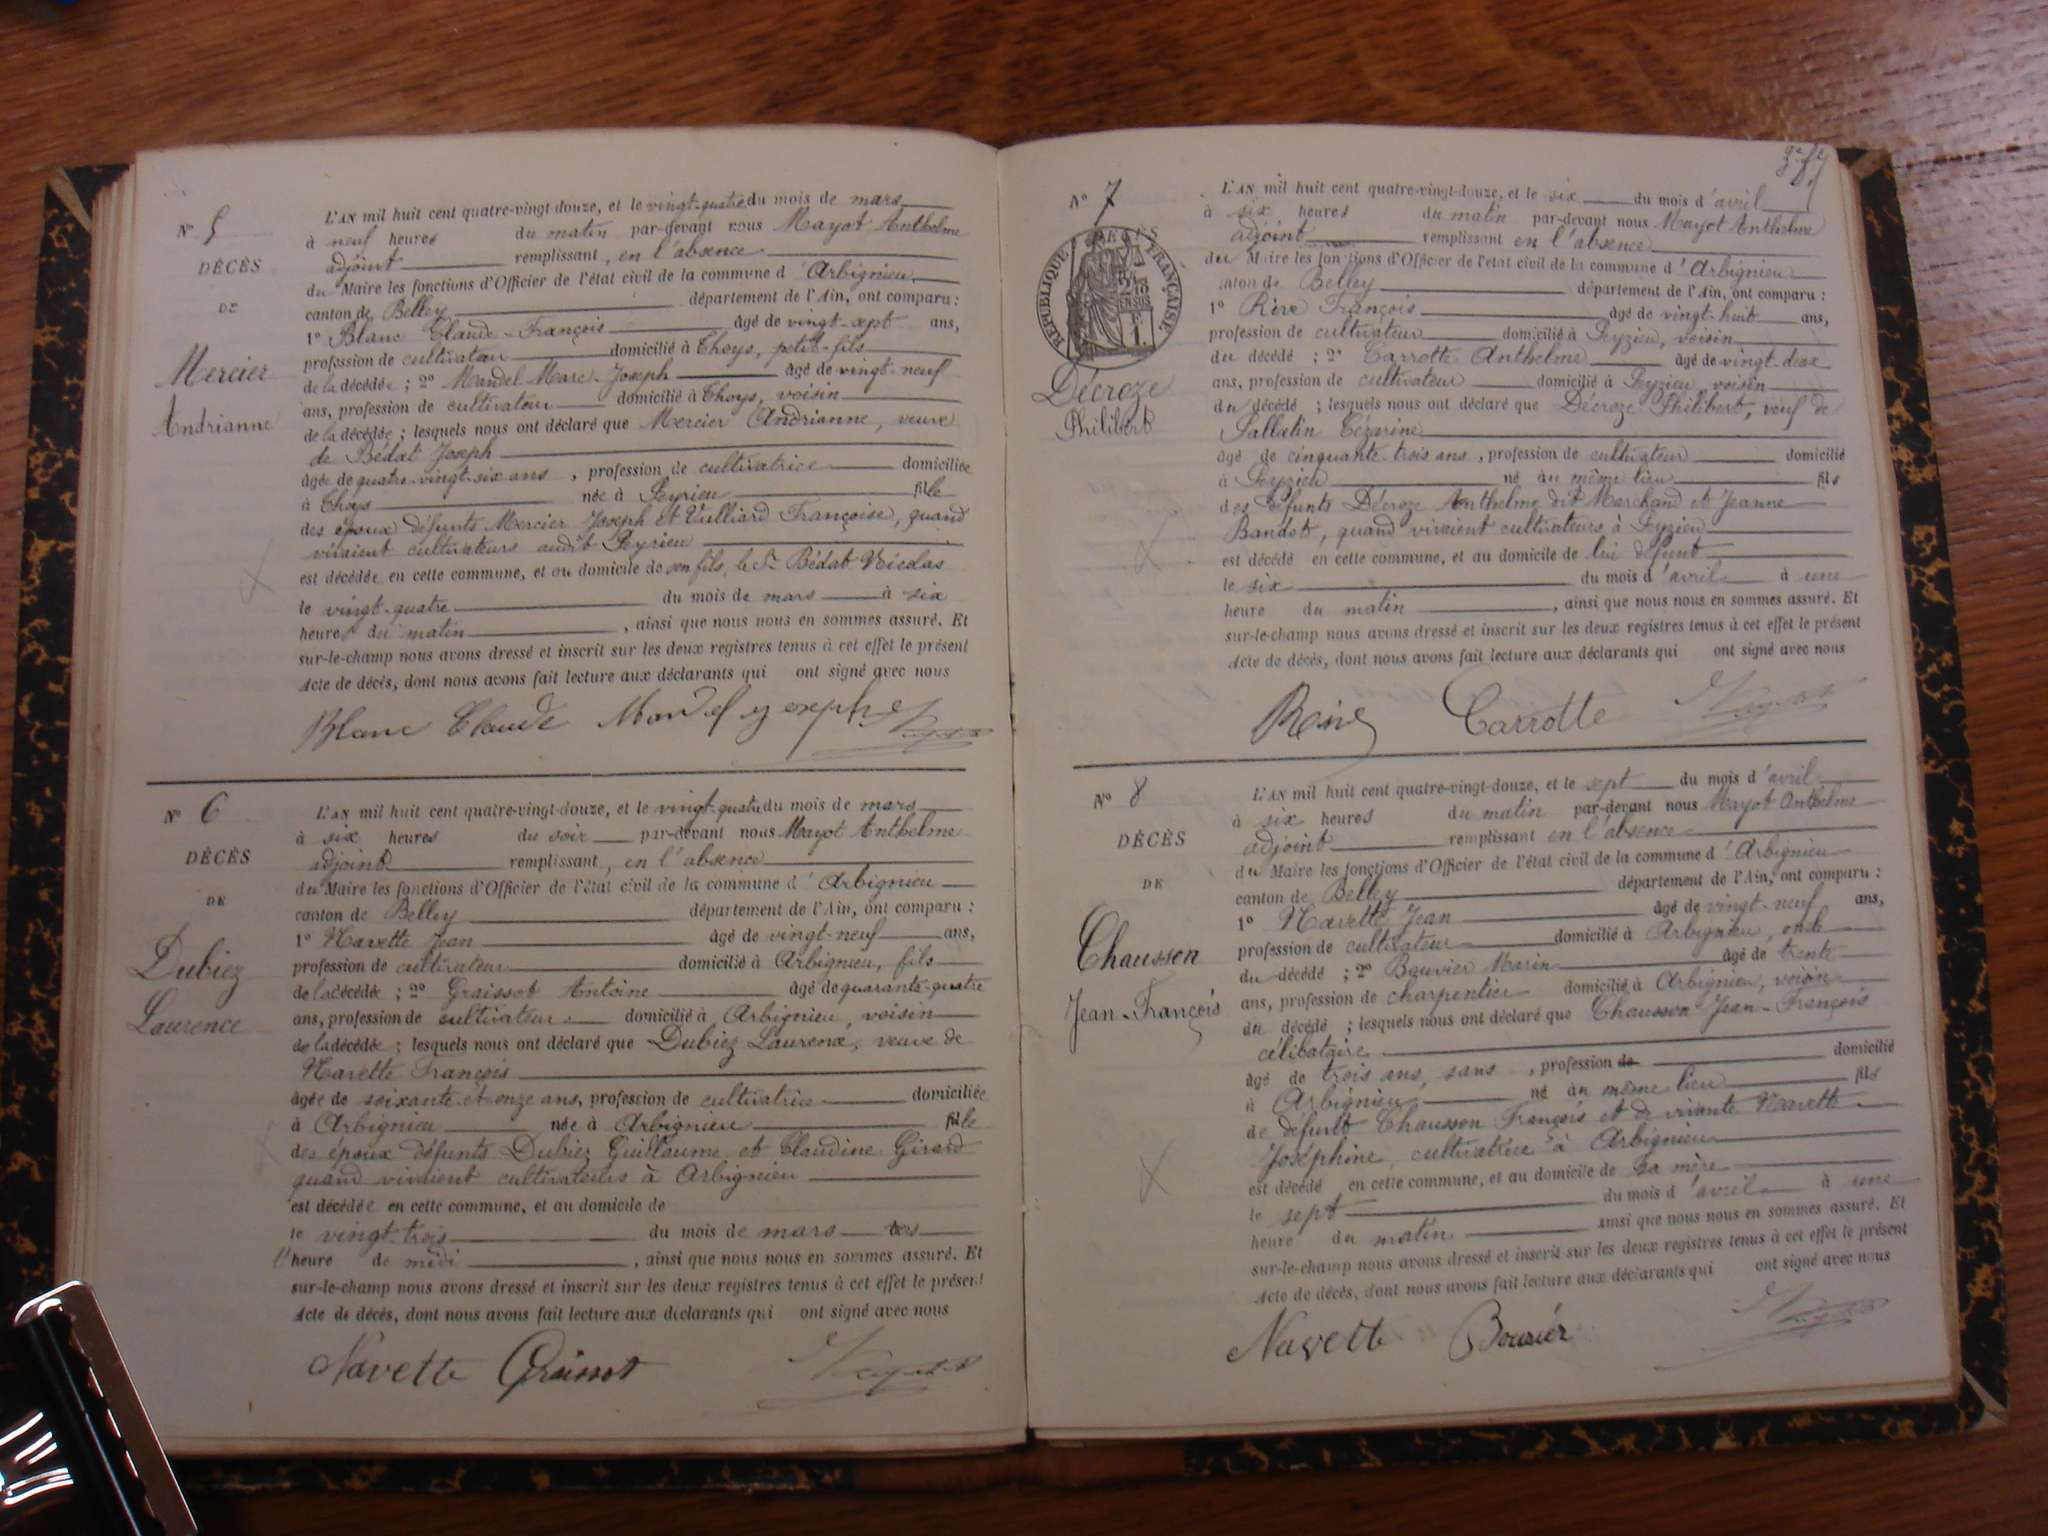 N° 5
DÉCÈS
DE
Mercier
Andrianne
L'AN mil huit cent quatre-vingt-douze, et le vingt-quatre du mois de mars
à neuf heures du matin par-devant nous Mayot Anthelme
adjoint remplissant, en l'absence
du Maire les fonctions d'Officier de l'état civil de la commune d'Arbignieu
canton de Belley département de l'Ain, ont comparu :
1° Blanc Claude-François âgé de vingt-sept ans,
profession de cultivateur domicilié à Thoys, petit-fils
de la décédée ; 2° Mandel Marc-Joseph âgé de vingt-neuf
ans, profession de cultivateur domicilié à Thoys, voisin
de la décédée ; lesquels nous ont déclaré que Mercier Andrianne, veuve
de Bédat Joseph
âgée de quatre-vingt-six ans, profession de cultivatrice domiciliée
à Thoys née à Peyrieu fille
des époux défunts Mercier Joseph et Vulliard Françoise, quand
vivaient cultivateurs audit Peyrieu
est décédée en cette commune, et au domicile de son fils, le Sr Bédat Nicolas
le vingt-quatre du mois de mars à six
heures du matin, ainsi que nous nous en sommes assuré. Et
sur-le-champ nous avons dressé et inscrit sur les deux registres tenus à cet effet le présent
Acte de décès, dont nous avons fait lecture aux déclarants qui ont signé avec nous
Blanc Claude Mandel Joseph Mayot
N° 6
DÉCÈS
DE
Dubiez
Laurence
L'AN mil huit cent quatre-vingt-douze, et le vingt-quatre du mois de mars
à six heures du soir par-devant nous Mayot Anthelme
adjoint remplissant, en l'absence
du Maire les fonctions d'Officier de l'état civil de la commune d'Arbignieu
canton de Belley département de l'Ain, ont comparu :
1° Navette Jean âgé de vingt-neuf ans,
profession de cultivateur domicilié à Arbignieu, fils
de la décédée ; 2° Graissot Antoine âgé de quarante-quatre
ans, profession de cultivateur domicilié à Arbignieu, voisin
de la décédée ; lesquels nous ont déclaré que Dubiez Laurence, veuve de
Navette François
âgée de soixante et onze ans, profession de cultivatrice domiciliée
à Arbignieu née à Arbignieu fille
des époux défunts Dubiez Guillaume et Claudine Girard
quand vivaient cultivateurs à Arbignieu
est décédée en cette commune, et au domicile de
le vingt-trois du mois de mars vers
l'heure de midi, ainsi que nous nous en sommes assuré. Et
sur-le-champ nous avons dressé et inscrit sur les deux registres tenus à cet effet le présent
Acte de décès, dont nous avons fait lecture aux déclarants qui ont signé avec nous
Navette Graissot Mayot
N° 7
RÉPUBLIQUE FRANÇAISE
Décroze
Philibert
L'AN mil huit cent quatre-vingt-douze, et le six du mois d'avril
à six heures du matin par-devant nous Mayot Anthelme
adjoint remplissant en l'absence
du Maire les fonctions d'Officier de l'état civil de la commune d'Arbignieu
canton de Belley département de l'Ain, ont comparu :
1° Rive François âgé de vingt-huit ans,
profession de cultivateur domicilié à Peyzieu, voisin
du décédé ; 2° Carrotte Anthelme âgé de vingt-deux
ans, profession de cultivateur domicilié à Peyzieu, voisin
du décédé ; lesquels nous ont déclaré que Décroze Philibert, veuf de
Pallatin Cézarine
âgé de cinquante-trois ans, profession de cultivateur domicilié
à Peyzieu né au même lieu fils
des défunts Décroze Anthelme dit Marchand et Jeanne
Bandot, quand vivaient cultivateurs à Peyzieu
est décédé en cette commune, et au domicile de lui défunt
le six du mois d'avril à une
heure du matin, ainsi que nous nous en sommes assuré. Et
sur-le-champ nous avons dressé et inscrit sur les deux registres tenus à cet effet le présent
Acte de décès, dont nous avons fait lecture aux déclarants qui ont signé avec nous
Rive Carrotte Mayot
N° 8
DÉCÈS
DE
Chausson
Jean-François
L'AN mil huit cent quatre-vingt-douze, et le sept du mois d'avril
à six heures du matin par-devant nous Mayot Anthelme
adjoint remplissant en l'absence
du Maire les fonctions d'Officier de l'état civil de la commune d'Arbignieu
canton de Belley département de l'Ain, ont comparu :
1° Navette Jean âgé de vingt-neuf ans,
profession de cultivateur domicilié à Arbignieu, oncle
du décédé ; 2° Bouvier Marin âgé de trente
ans, profession de charpentier domicilié à Arbignieu, voisin
du décédé ; lesquels nous ont déclaré que Chausson Jean-François
célibataire
âgé de trois ans, sans, profession de domicilié
à Arbignieu né au même lieu fils
de défunt Chausson François et de vivante Navette
Joséphine, cultivatrice à Arbignieu
est décédé en cette commune, et au domicile de sa mère
le sept du mois d'avril à une
heure du matin ainsi que nous nous en sommes assuré. Et
sur-le-champ nous avons dressé et inscrit sur les deux registres tenus à cet effet le présent
Acte de décès, dont nous avons fait lecture aux déclarants qui ont signé avec nous
Navette Bouvier Mayot